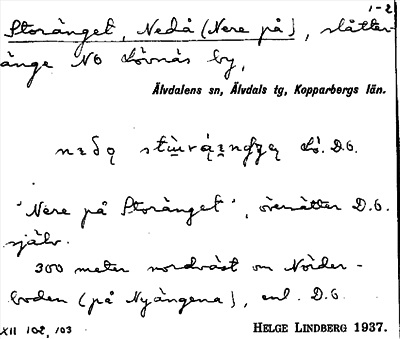 1-2
Storänget, Nedå (Nere på), slåtter-
änge NO Lövnäs by,
Älvdalens sn, Älvdals tg, Kopparbergs län.
Lö. D.O.
"Nere på Storänget", översätter D.O.
själv.
300 meter nordväst om Nörder-
boden (på Nyängena), enl. D.O.
XII 102, 103
HELGE LINDBERG 1937.